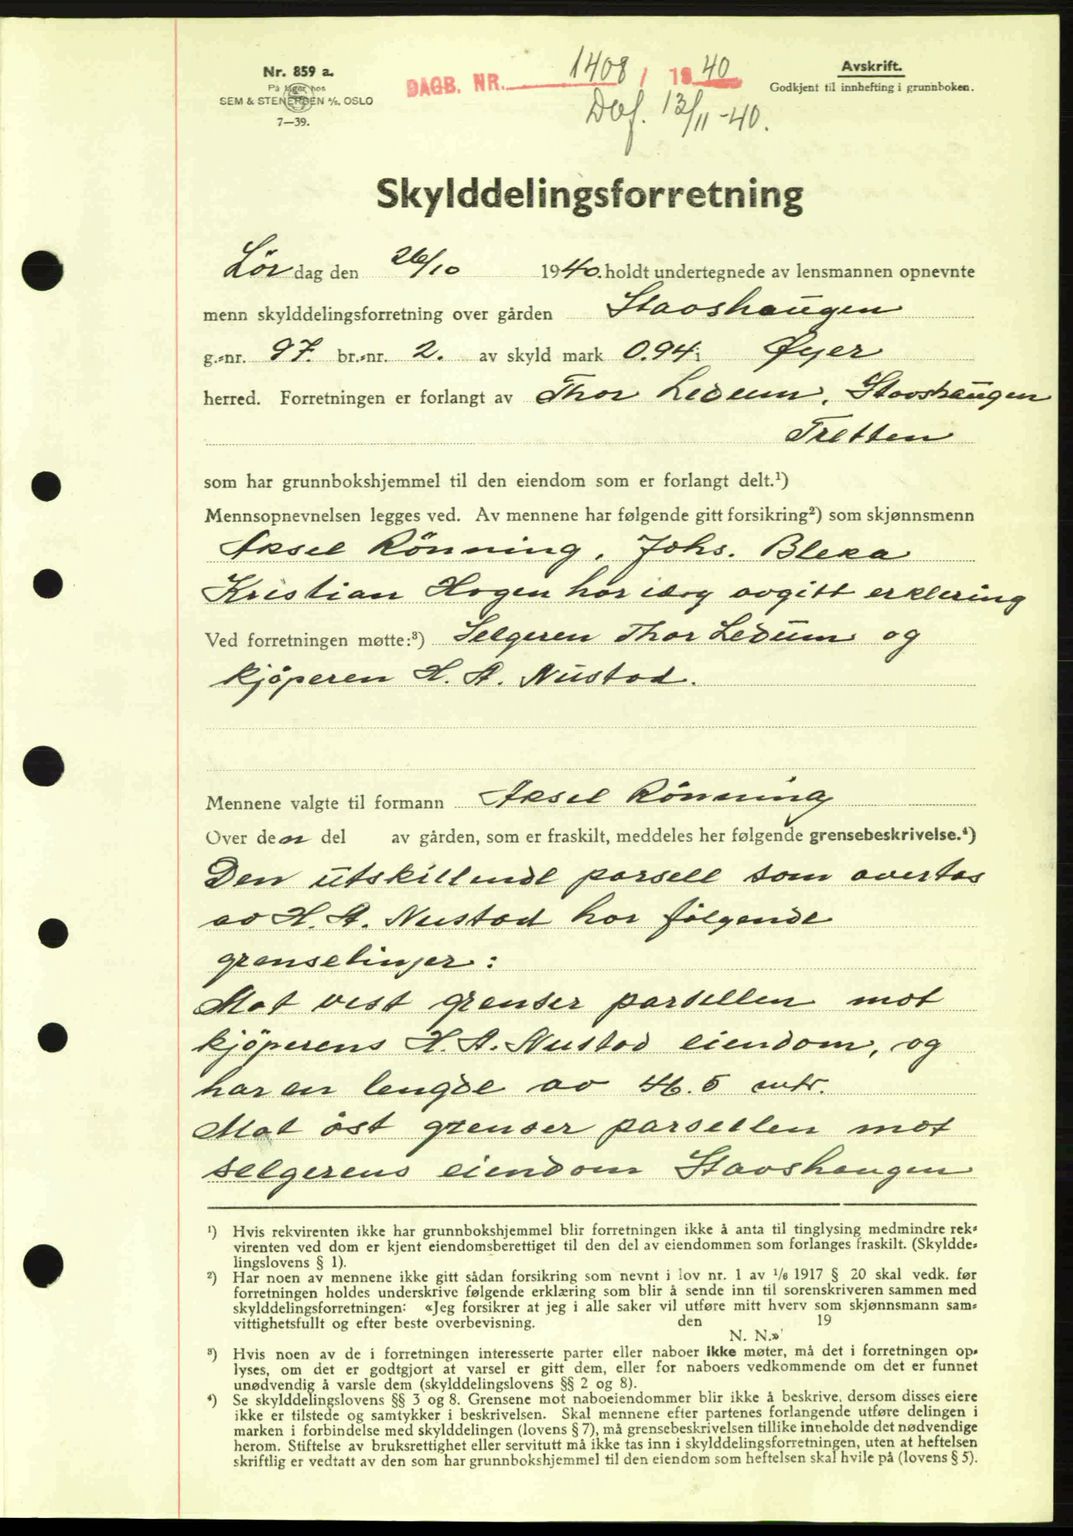 Nr. 859 a.
På lager hos
SEM & STENERSEN A/S, OSLO
7—39.
DAGB. NR. 1408 / 1940
Daf. 13/11-40.
Avskrift.
Godkjent til innhefting i grunnboken.
Skylddelingsforretning
Lördag den 26/10 1940. holdt undertegnede av lensmannen opnevnte
menn skylddelingsforretning over gården Stavshaugen
g.-nr. 97. br.-nr. 2. av skyld mark 0.94 i Øyer
herred. Forretningen er forlangt av Thor Ledum, Stavshaugen
Tretten
som har grunnbokshjemmel til den eiendom som er forlangt delt.¹)
Mennsopnevnelsen legges ved. Av mennene har følgende gitt forsikring²) som skjønnsmenn
Aksel Rönning, Johs. Bleka
Kristian Hogen har idag avgitt erklering
Ved forretningen møtte:³) Selgeren Thor Ledum og
kjöperen H. A. Nustad.
Mennene valgte til formann Aksel Rönning
Over den del av gården, som er fraskilt, meddeles her følgende grensebeskrivelse.⁴)
Den utskillende parsell som overtas
av H. A. Nustad har fölgende
grenselinjer:
Mot vest grenser parsellen mot
kjöperens H. A. Nustad eiendom, og
har en lengde av 46.5 mtr.
Mot öst grenser parsellen mot
selgerens eiendom Stavshaugen
¹) Hvis rekvirenten ikke har grunnbokshjemmel blir forretningen ikke å anta til tinglysing medmindre rek-
virenten ved dom er kjent eiendomsberettiget til den del av eiendommen som forlanges fraskilt. (Skyldde-
lingslovens § 1).
²) Har noen av mennene ikke gitt sådan forsikring som nevnt i lov nr. 1 av 1/6 1917 § 20 skal vedk. før
forretningen holdes underskrive følgende erklæring som blir å sende inn til sorenskriveren sammen med
skylddelingsforretningen: «Jeg forsikrer at jeg i alle saker vil utføre mitt hverv som skjønnsmann sam-
vittighetsfullt og efter beste overbevisning. den 19
N. N.»
³) Hvis noen av de i forretningen interesserte parter eller naboer ikke møter, må det i forretningen op-
lyses, om det er godtgjort at varsel er gitt dem, eller for naboers vedkommende om det er funnet
unødvendig å varsle dem (skylddelingslovens §§ 2 og 8).
⁴) Se skylddelingslovens §§ 3 og 8. Grensene mot naboeiendommer blir ikke å beskrive, dersom disses eiere
ikke er tilstede og samtykker i beskrivelsen. Skal mennene efter partenes forlangende utføre delingen i
marken i forbindelse med skylddelingen (lovens § 7), må grensebeskrivelsen tillike inneholde det nødvendige
herom. Stiftelse av bruksrettighet eller servitutt må ikke tas inn i skylddelingsforretningen, uten at heftelsen
skriftlig er vedtatt av den som har grunnbokshjemmel til den eiendom som heftelsen skal hvile på (lovens § 5).